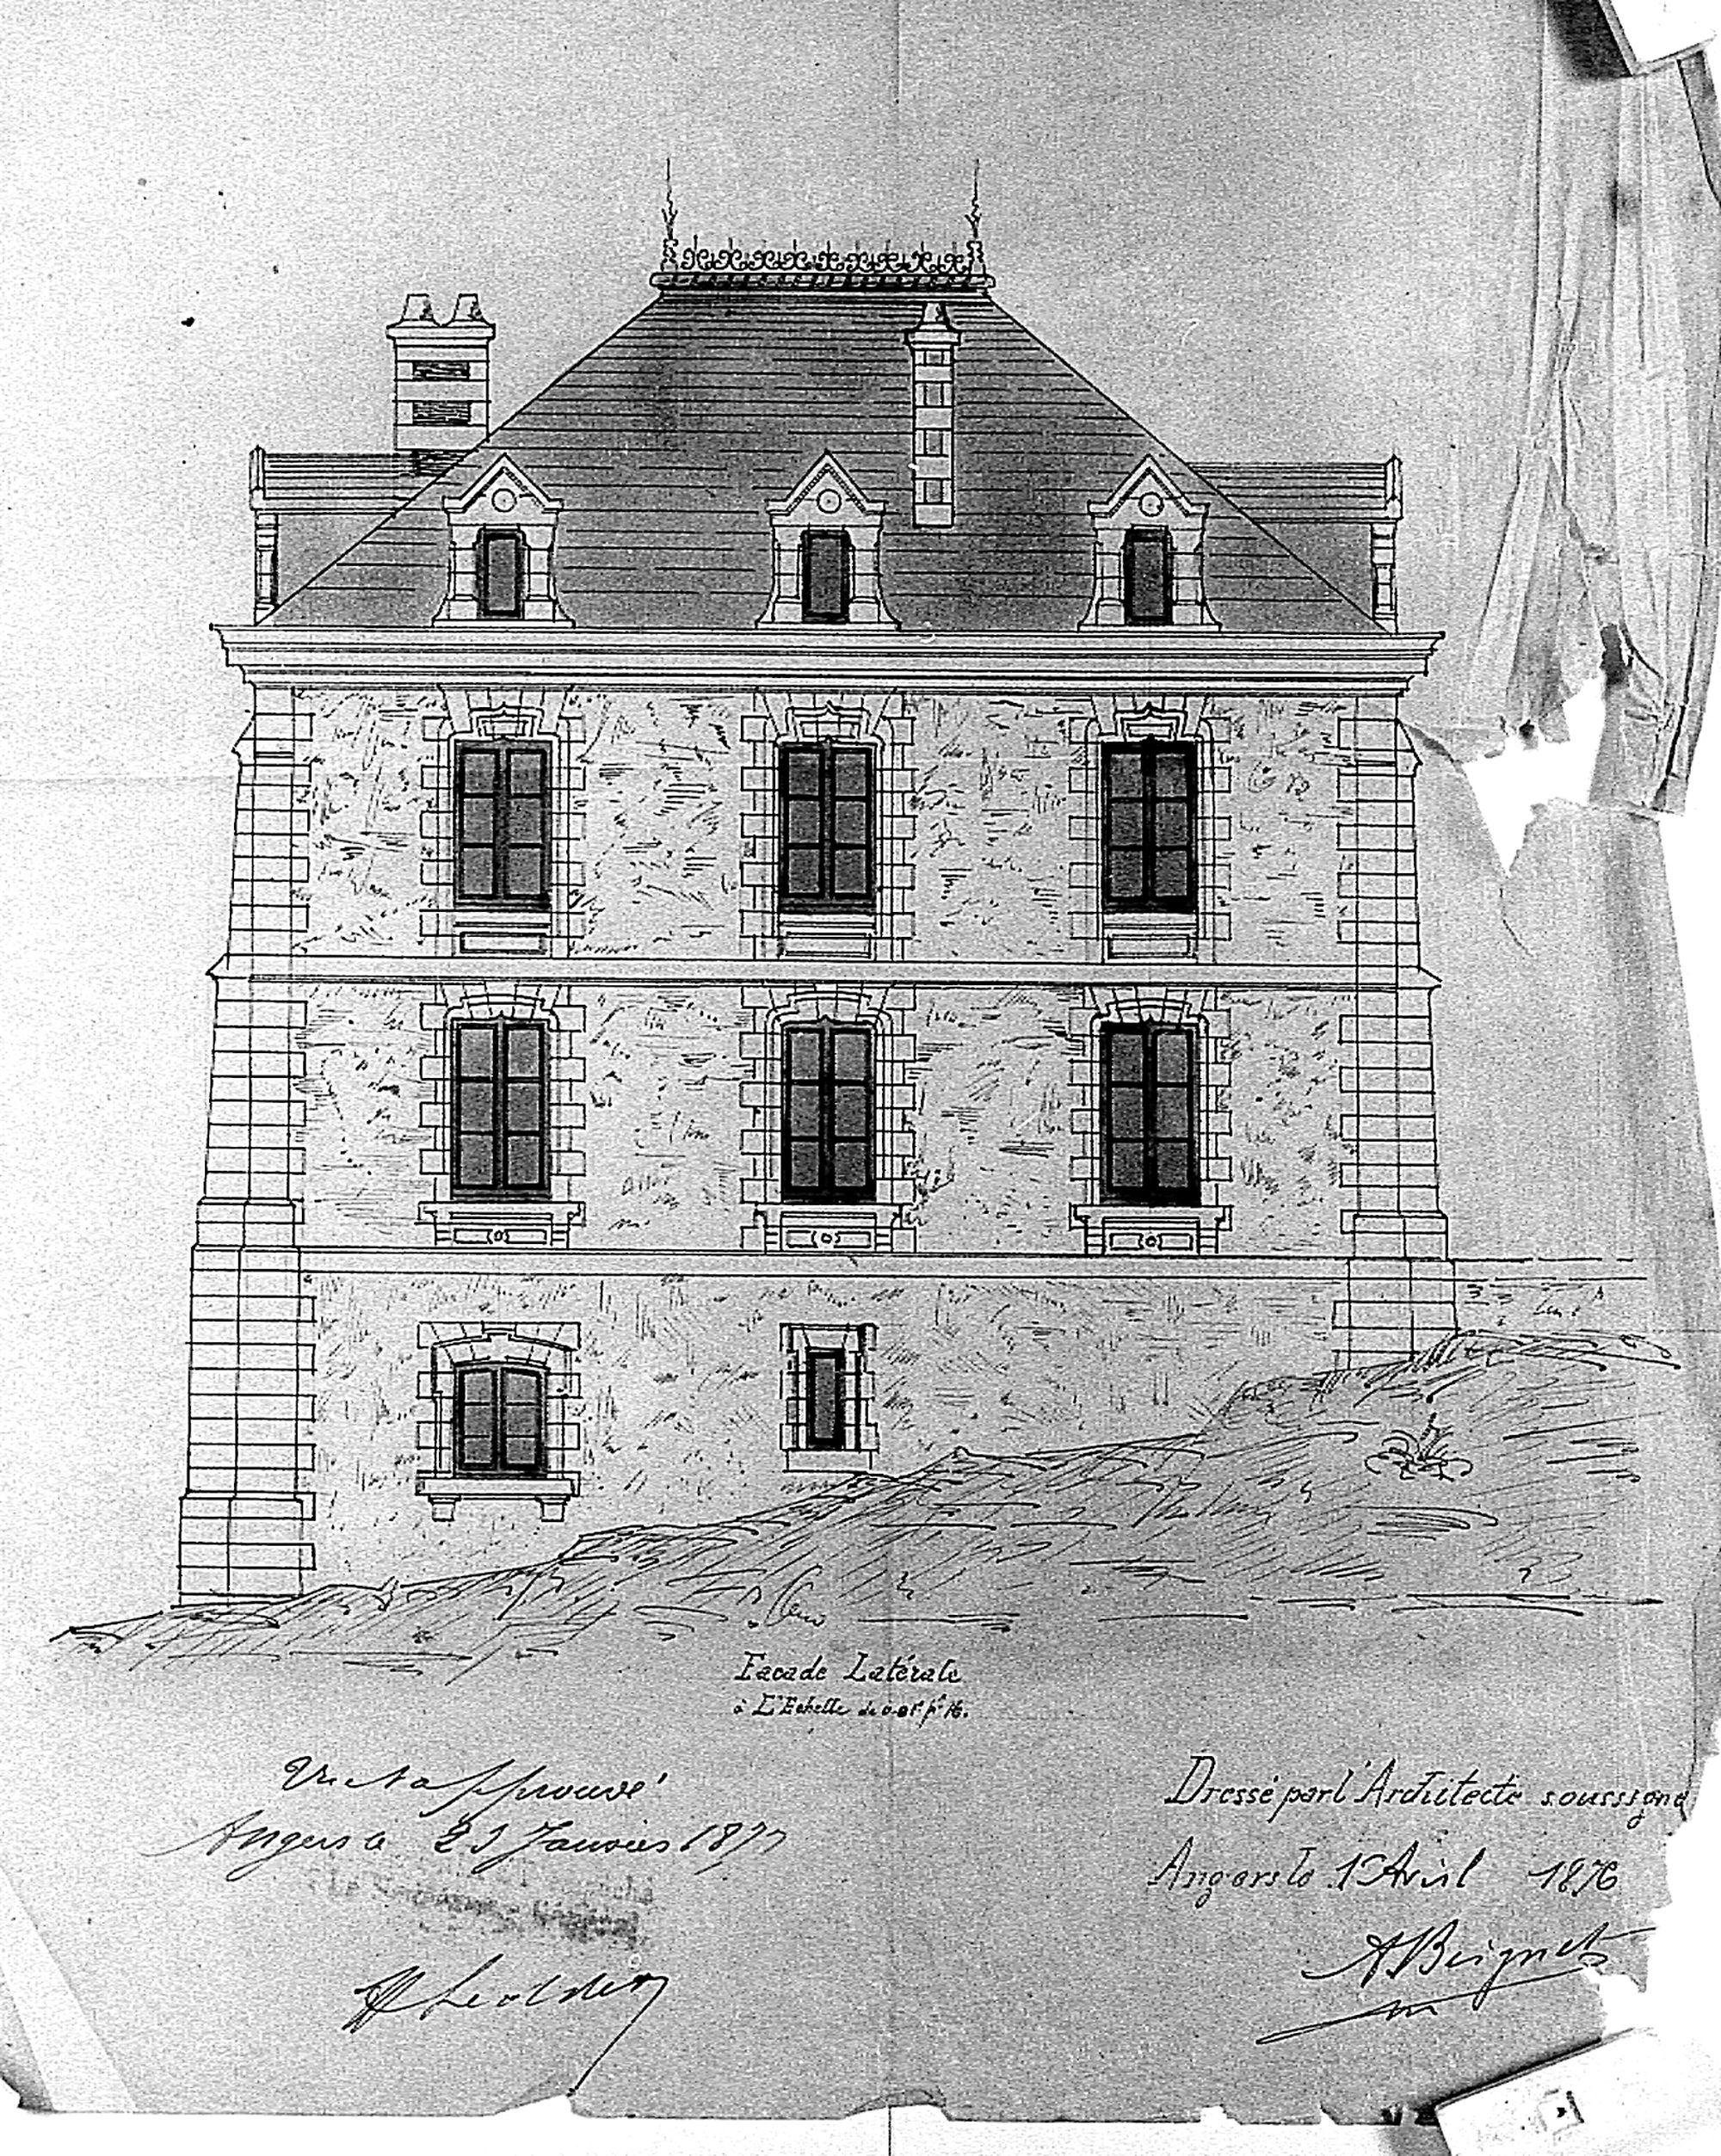 Façade Latérale
à L'Echelle de 0.01 pr M.
Vu et approuvé
Angers le 23 Janvier 1877
Le Secrétaire Général
Dressé par l'Architecte soussigné
Angers le 1er Avril 1876
A Beignet